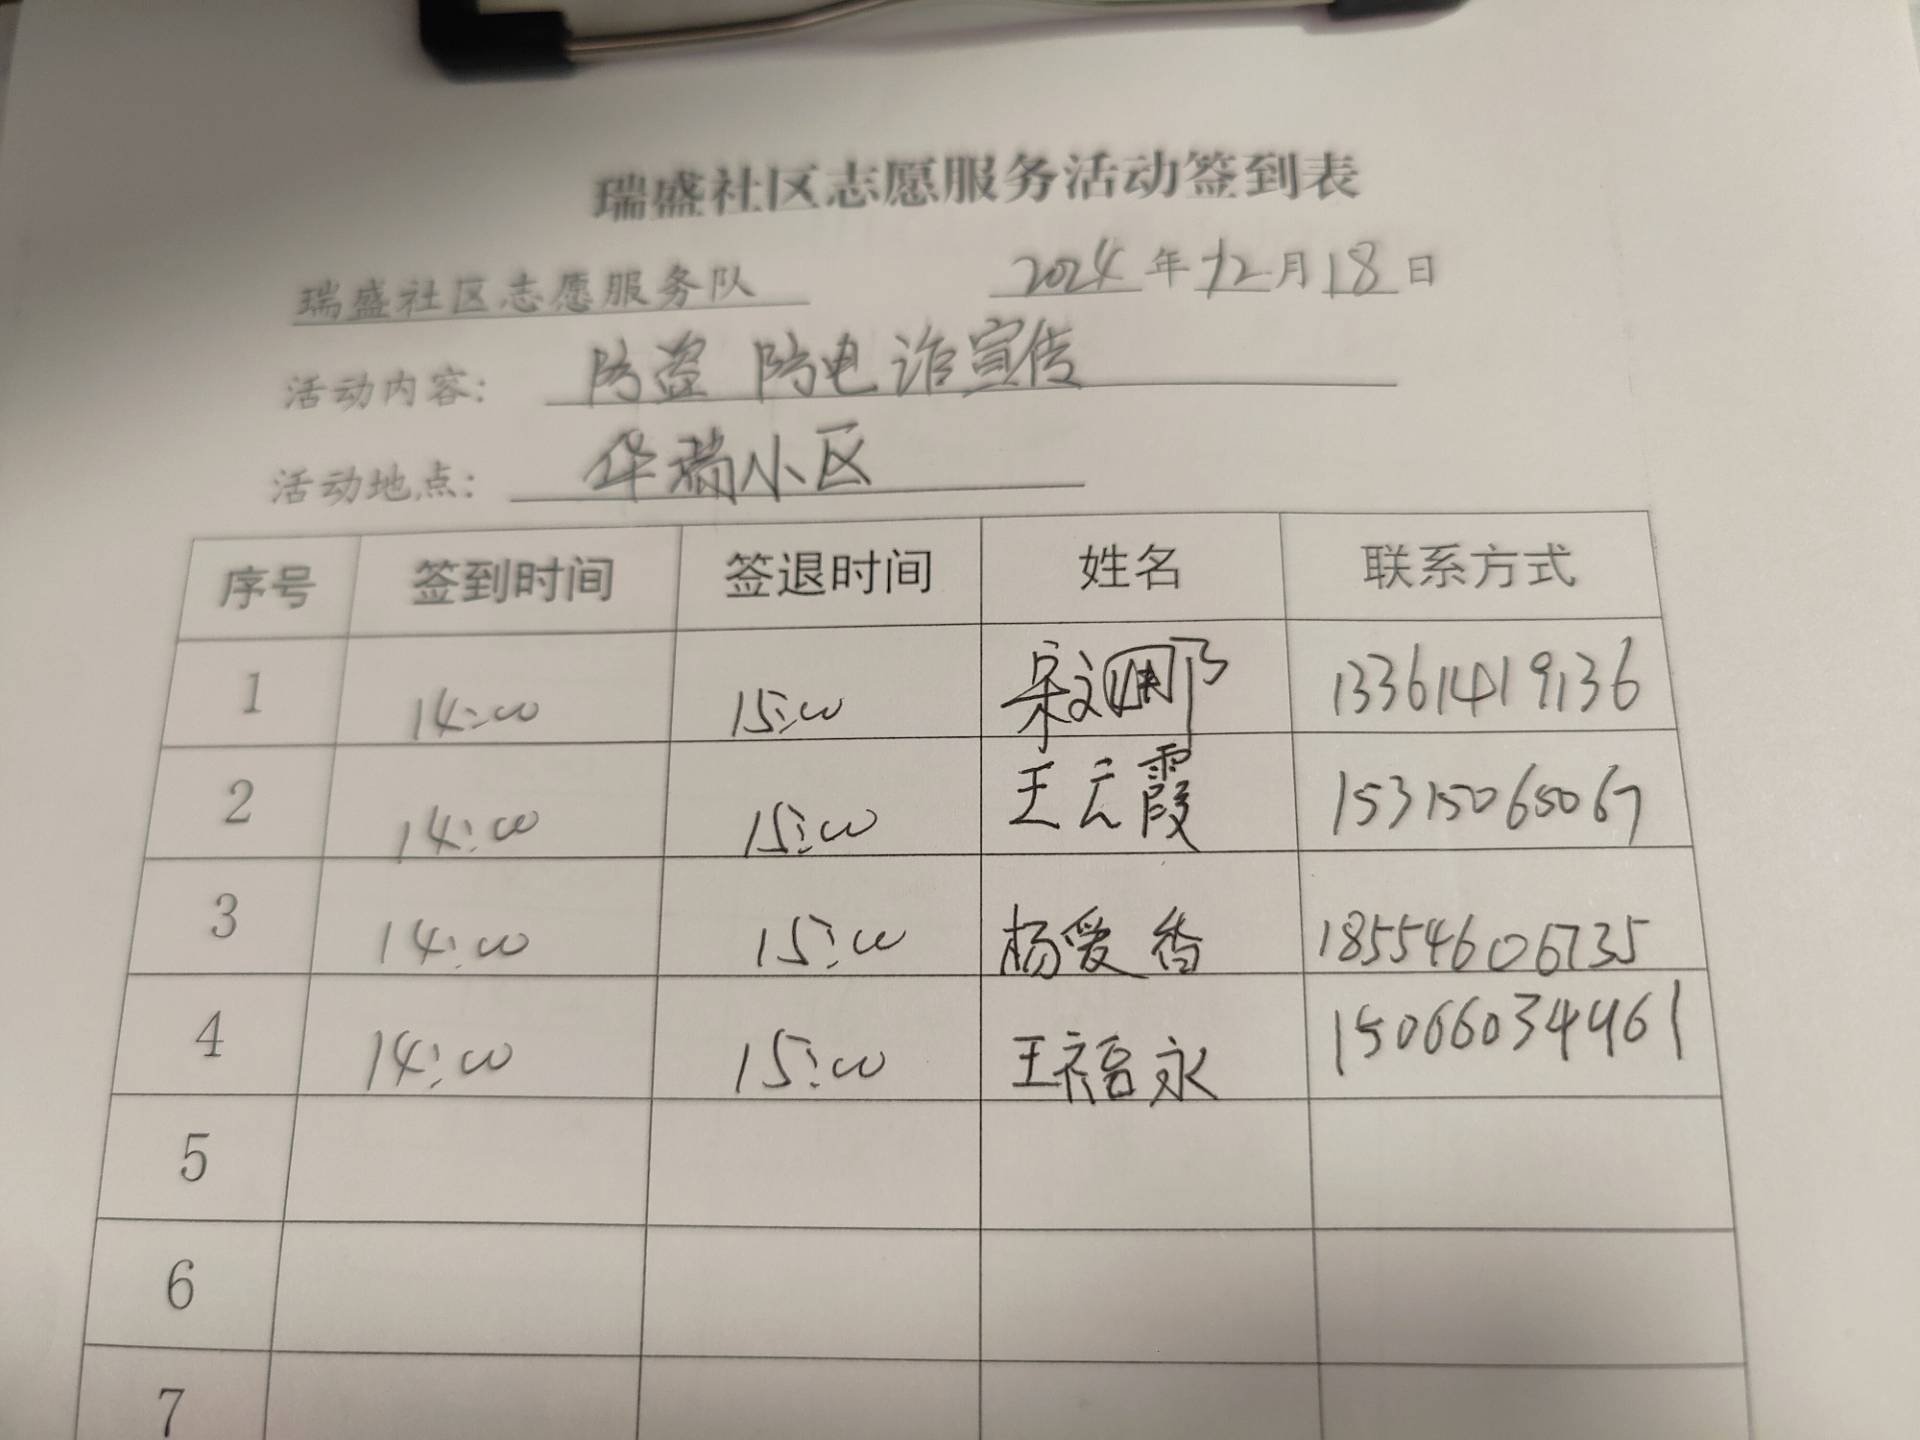 瑞盛社区志愿服务活动签到表
瑞盛社区志愿服务队 2024年12月18日
活动内容： 防盗 防电诈宣传
活动地点： 华瑞小区
序号 签到时间 签退时间 姓名 联系方式
1 14:00 15:00 宋文 13361419136
2 14:00 15:00 王云霞 15315065067
3 14:00 15:00 杨爱香 18554606735
4 14:00 15:00 王福永 15066034461
5
6
7